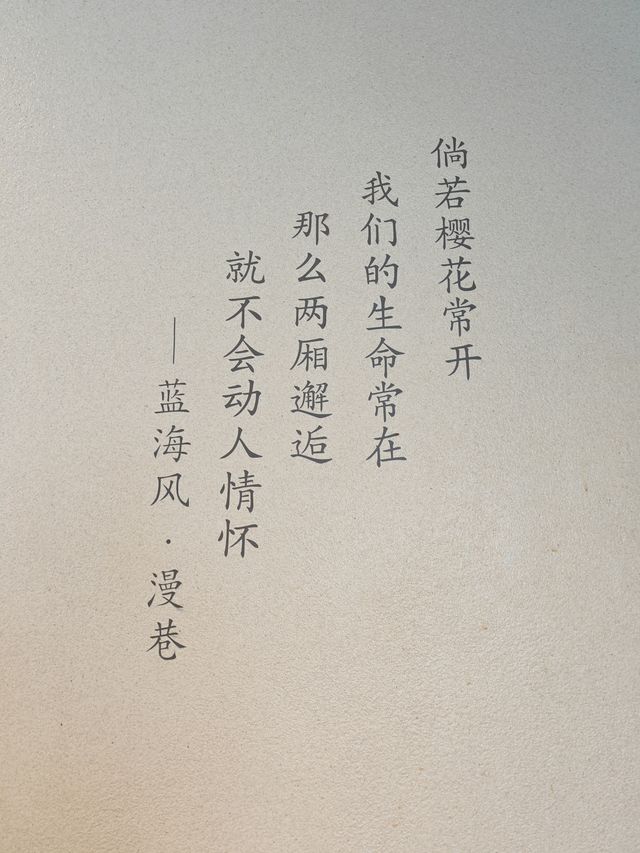 倘若樱花常开
我们的生命常在
那么两厢邂逅
就不会动人情怀
——蓝海风·漫巷